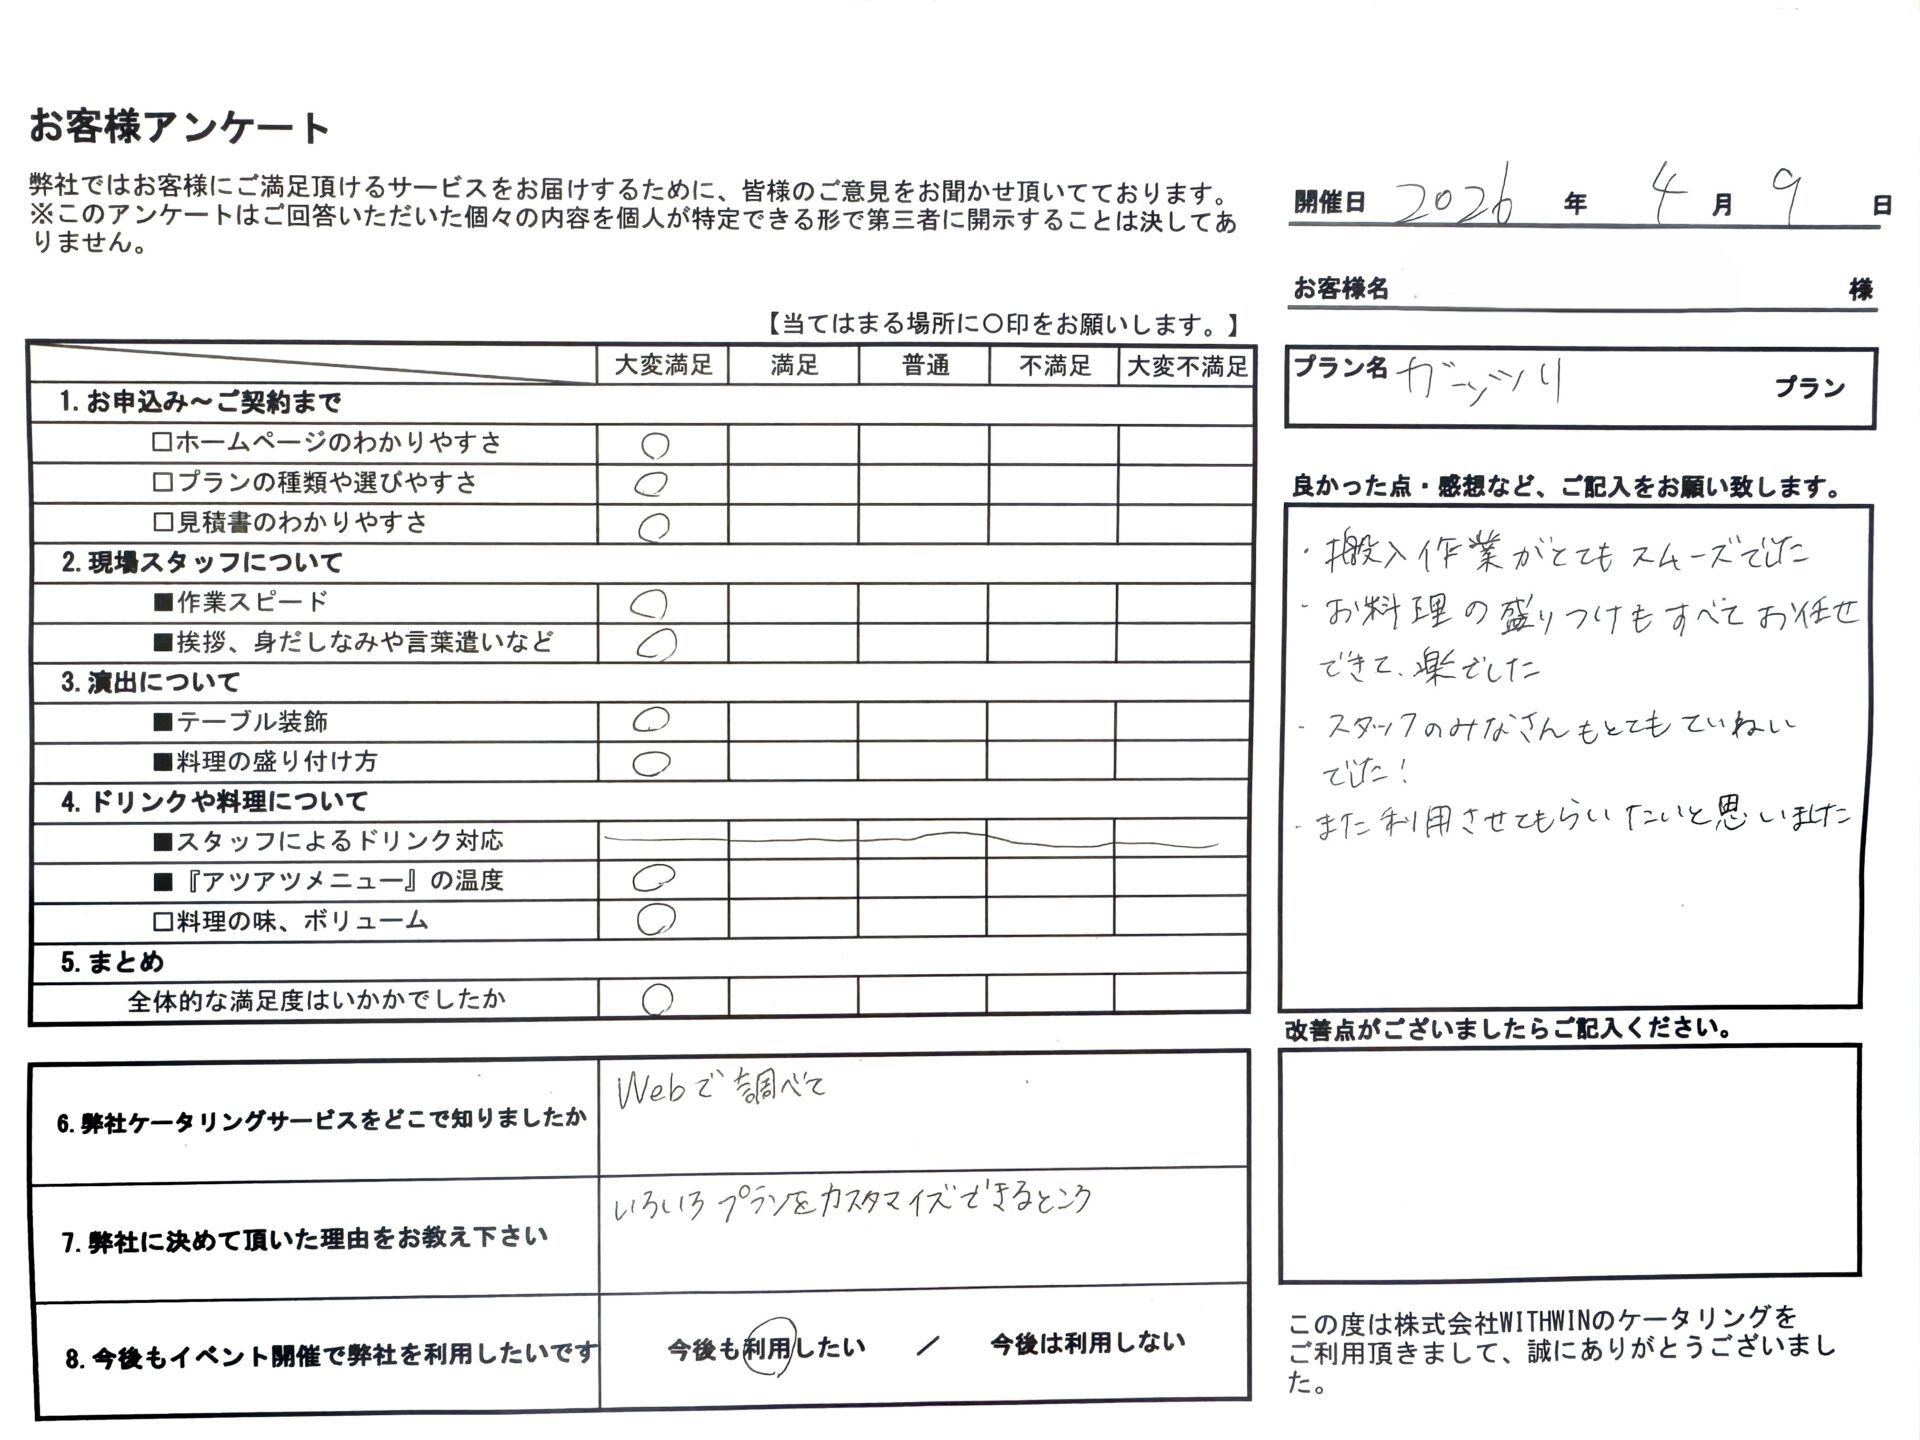 お客様アンケート
弊社ではお客様にご満足頂けるサービスをお届けするために、皆様のご意見をお聞かせ頂いてております。
※このアンケートはご回答いただいた個々の内容を個人が特定できる形で第三者に開示することは決してあ
りません。
【当てはまる場所に〇印をお願いします。】
大変満足 満足 普通 不満足 大変不満足
1.お申込み～ご契約まで
□ホームページのわかりやすさ ○
□プランの種類や選びやすさ ○
□見積書のわかりやすさ ○
2.現場スタッフについて
■作業スピード ○
■挨拶、身だしなみや言葉遣いなど ○
3.演出について
■テーブル装飾 ○
■料理の盛り付け方 ○
4.ドリンクや料理について
■スタッフによるドリンク対応
■『アツアツメニュー』の温度 ○
□料理の味、ボリューム ○
5.まとめ
全体的な満足度はいかかでしたか ○
6.弊社ケータリングサービスをどこで知りましたか Webで調べて
7.弊社に決めて頂いた理由をお教え下さい いろいろプランをカスタマイズできるところ
8.今後もイベント開催で弊社を利用したいです 今後も利用したい ／ 今後は利用しない
開催日 2026 年 4 月 9 日
お客様名 様
プラン名 ガーッツリ プラン
良かった点・感想など、ご記入をお願い致します。
・搬入作業がとてもスムーズでした
・お料理の盛りつけもすべてお任せ
できて、楽でした
・スタッフのみなさんもとてもていねい
でした！
・また利用させてもらいたいと思いました
改善点がございましたらご記入ください。
この度は株式会社WITHWINのケータリングを
ご利用頂きまして、誠にありがとうございまし
た。